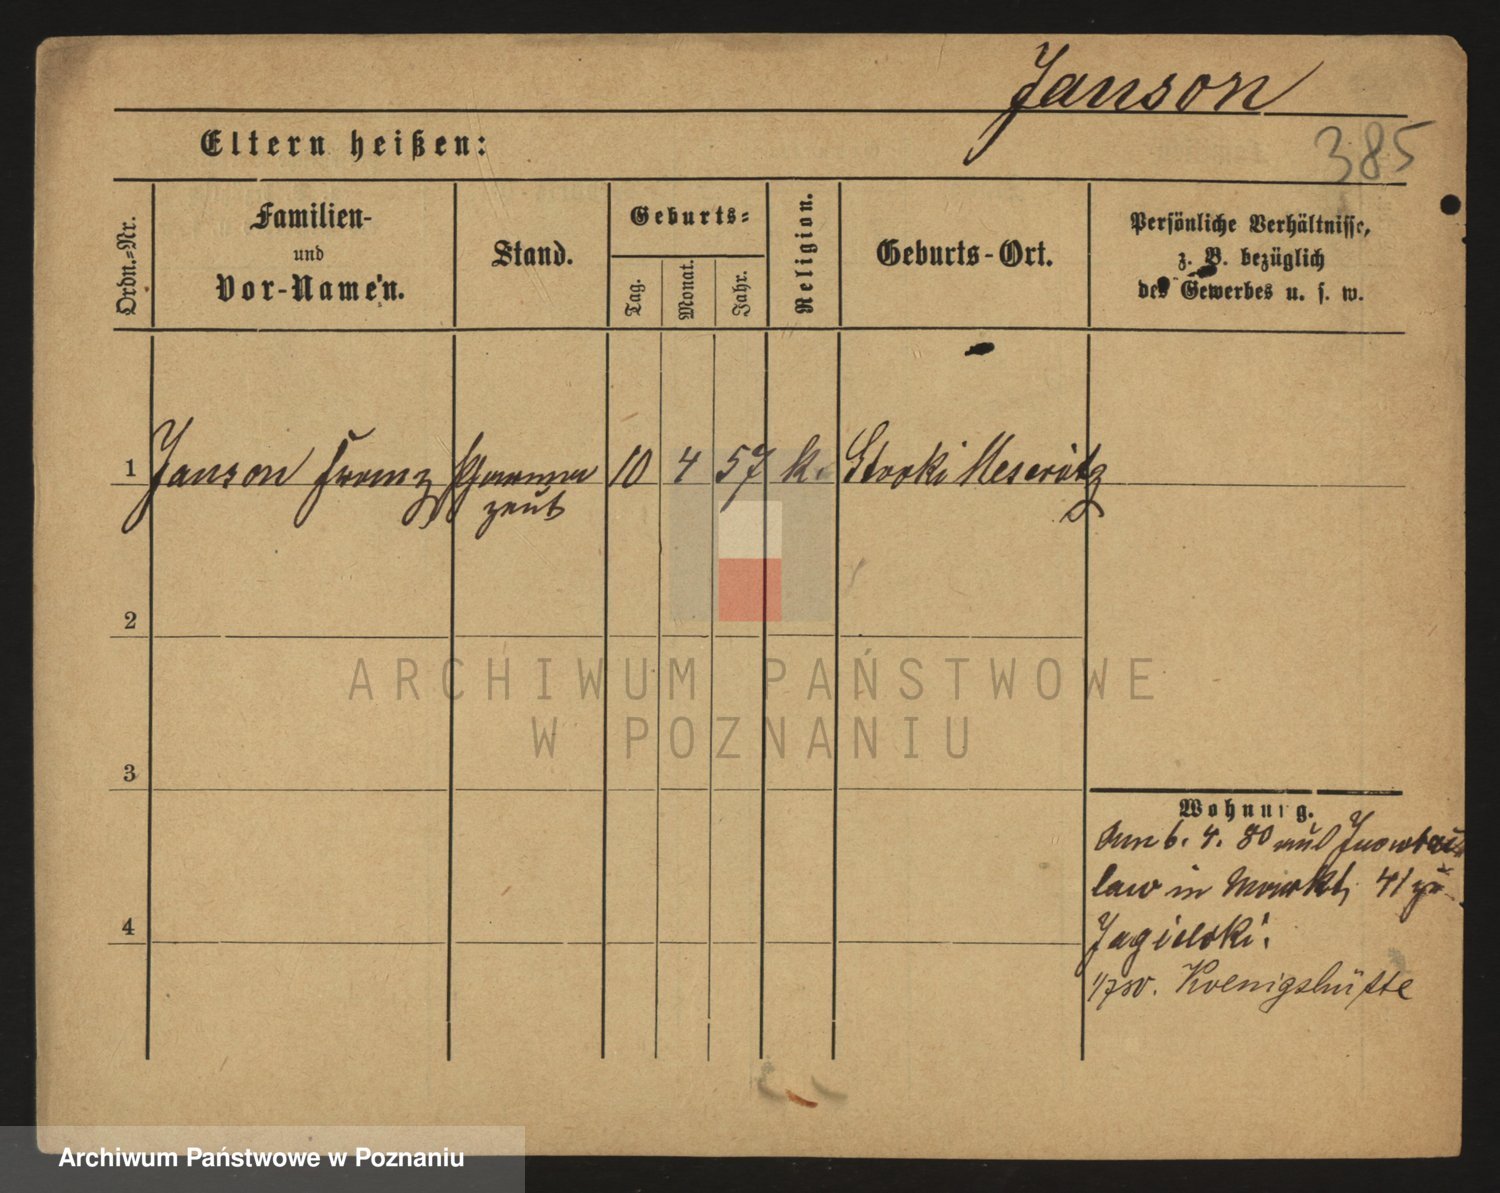 Janson
385
Eltern heißen:
Ordn.-Nr.
Familien-
und
Vor-Namen.
Stand.
Geburts-
Tag.
Monat.
Jahr.
Religion.
Geburts-Ort.
Persönliche Verhältnisse,
z. B. bezüglich
des Gewerbes u. s. w.
1 Janson Franz 10 4 57 k. Meseritz
2
3
4
Wohnung.
6. 4. 80 Inowraz
law in Markt 41 zu
Jagielski.
Koenigshütte
ARCHIWUM PAŃSTWOWE
W POZNANIU
Archiwum Państwowe w Poznaniu